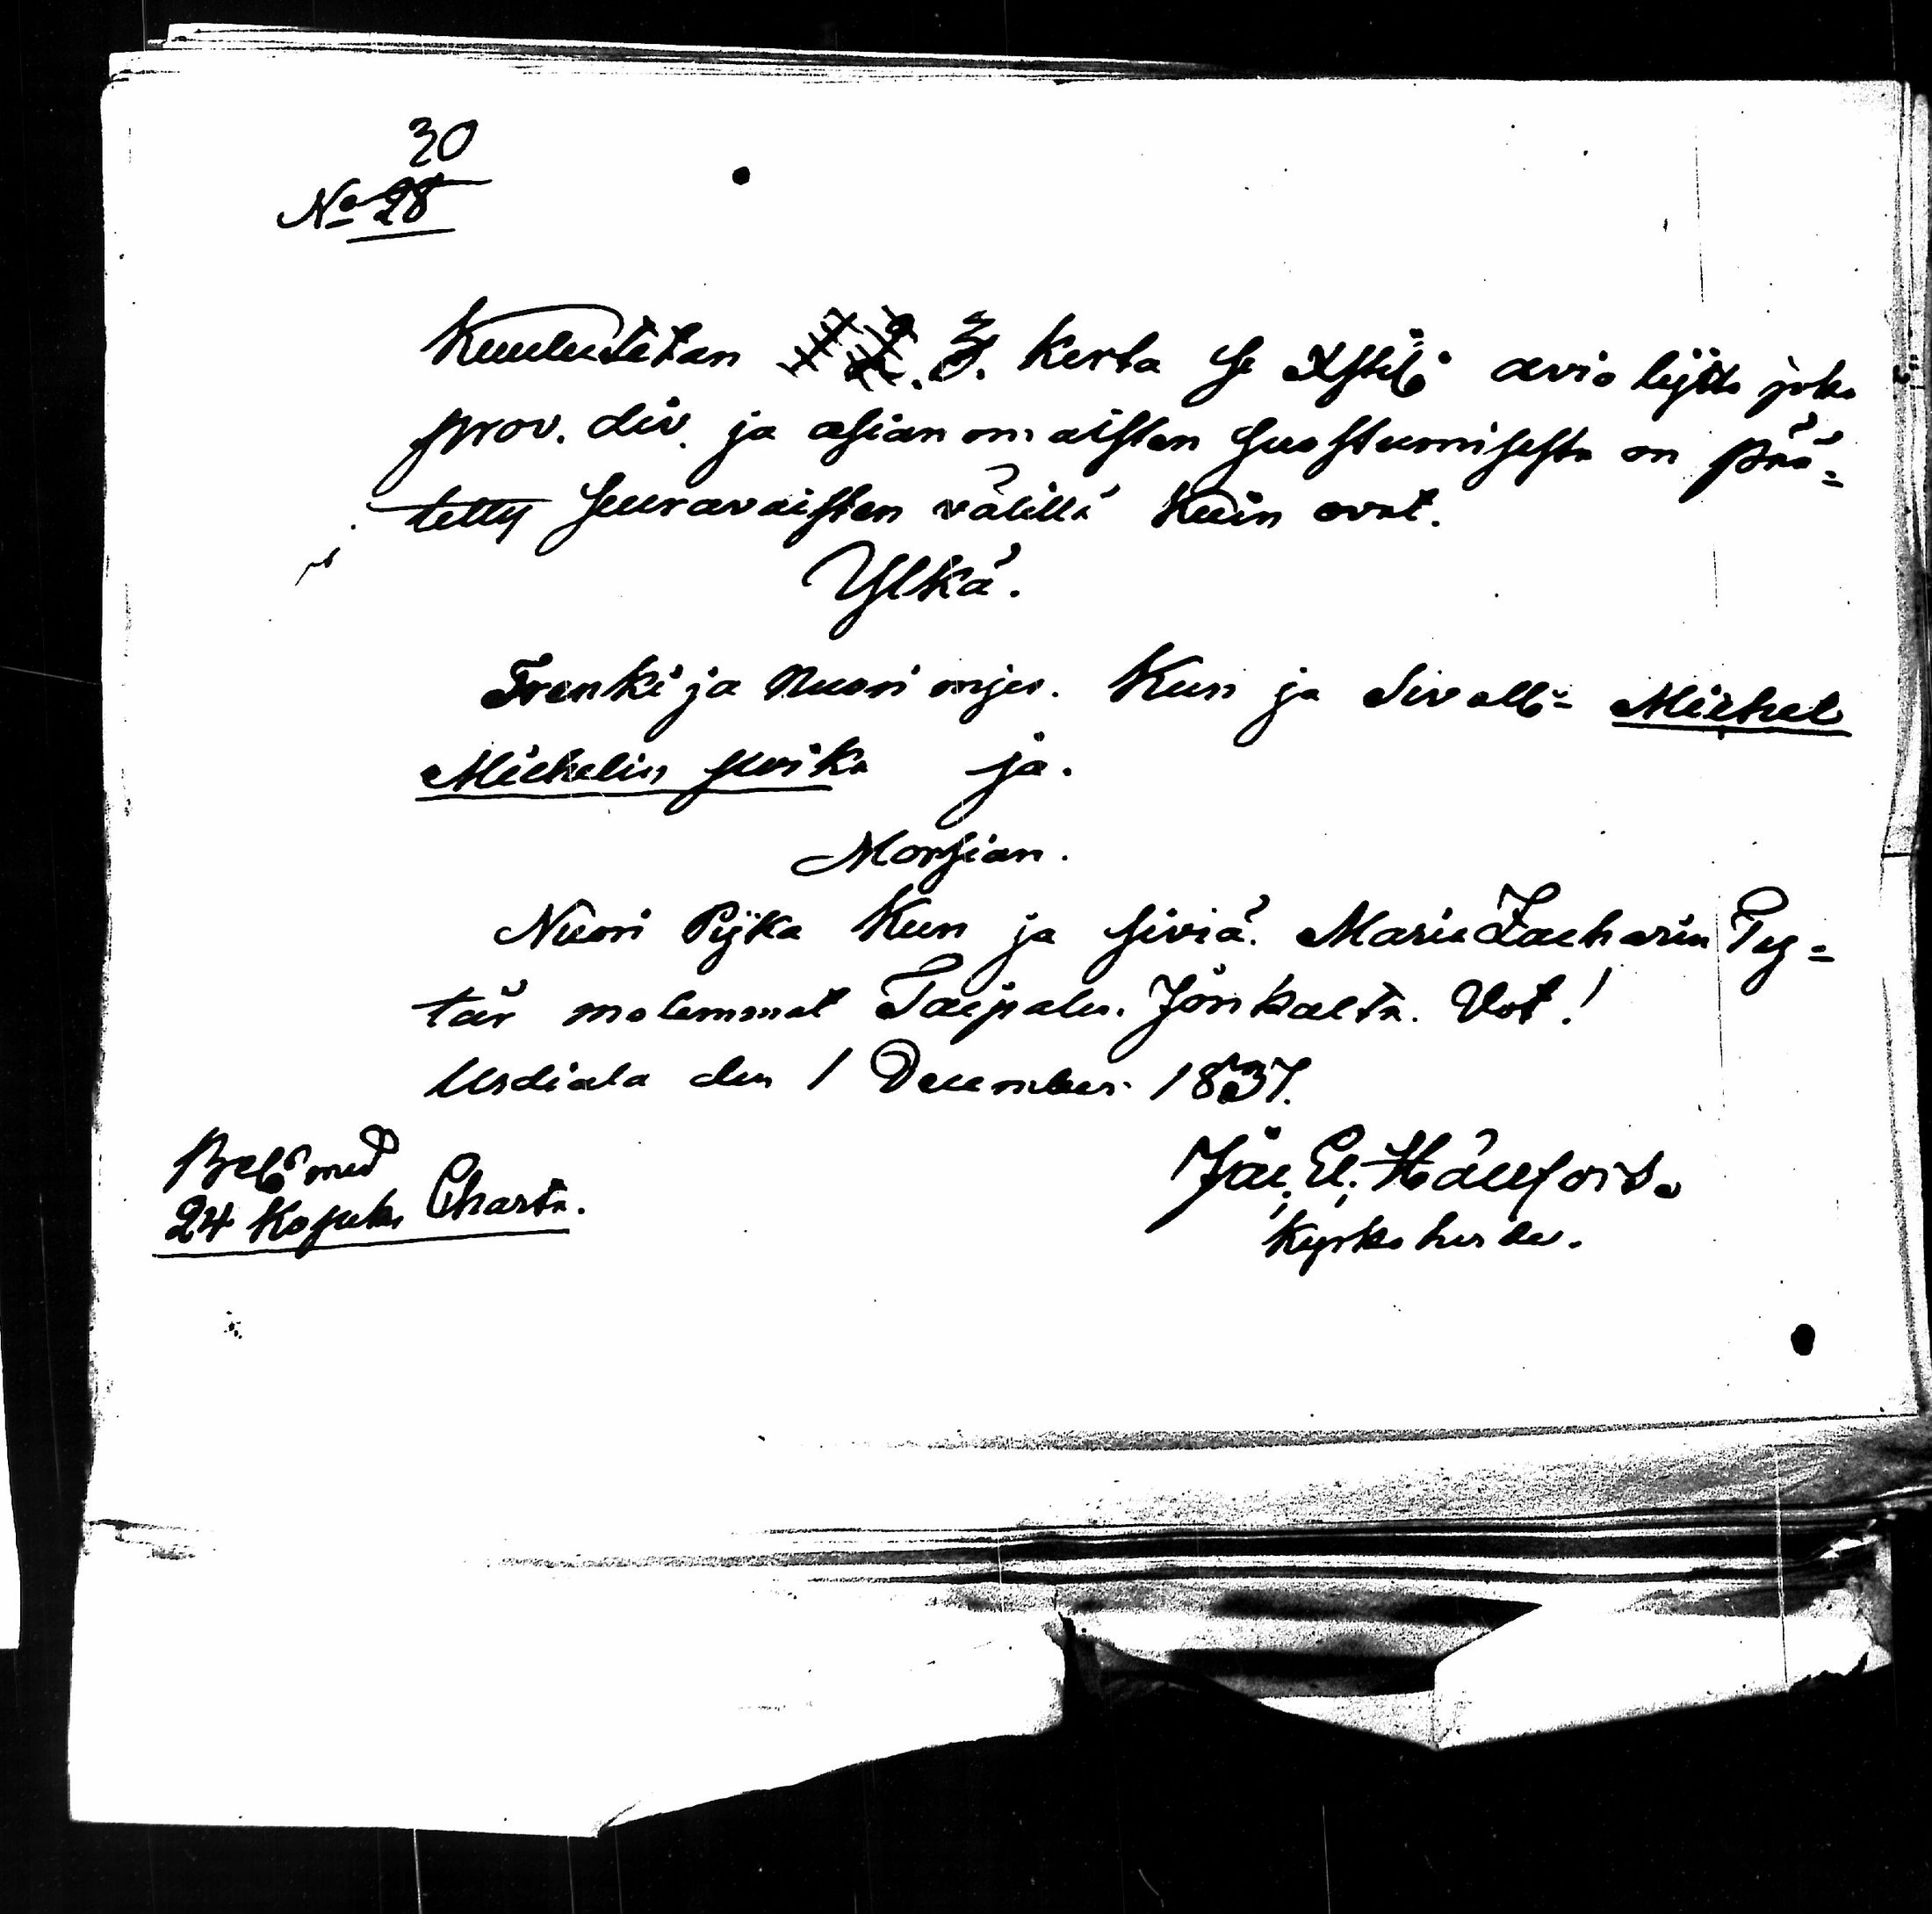 30
No 28
Kuulutetan 1. 2. 3. kerta se Xstil: avio liitto joka
prov. div. ja asian omaisten suostumisesta on pää=
tetty seuravaisten välillä kuin ovat.
Ylkä.
Trenki ja Nuori mies. Kun ja Sivell= Michel
Michelin poika ja.
Morsian.
Nuori Pijka Kun ja siviä. Maria Zacharin Ty=
tär molemmat Taipales. Jonkalta. Vot!
Usdiala den 1 December 1837.
Bel. med
24 Kopek Charta.
Joh. El. Hällfors.
Kyrkoherde.